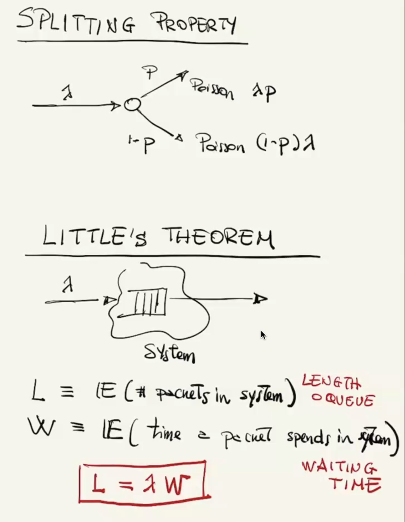 SPLITTING PROPERTY
λ
P
Poisson λp
1-p
Poisson (1-p)λ
LITTLE'S THEOREM
λ
System
L ≡ IE (# packets in system)
LENGTH
O QUEUE
W ≡ IE (time a packet spends in system)
WAITING
TIME
L = λ W